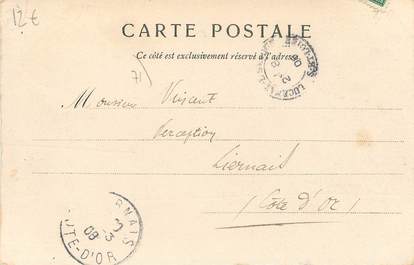 12€
CARTE POSTALE
Ce côté est exclusivement réservé à l'adresse
71
Monsieur Vincent
Perception
Liernais
(Côte d'Or)
RNAIS
3
08
TE-D'OR